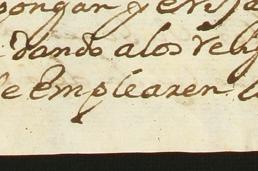 pongan y
dando a los relig
se emplearen